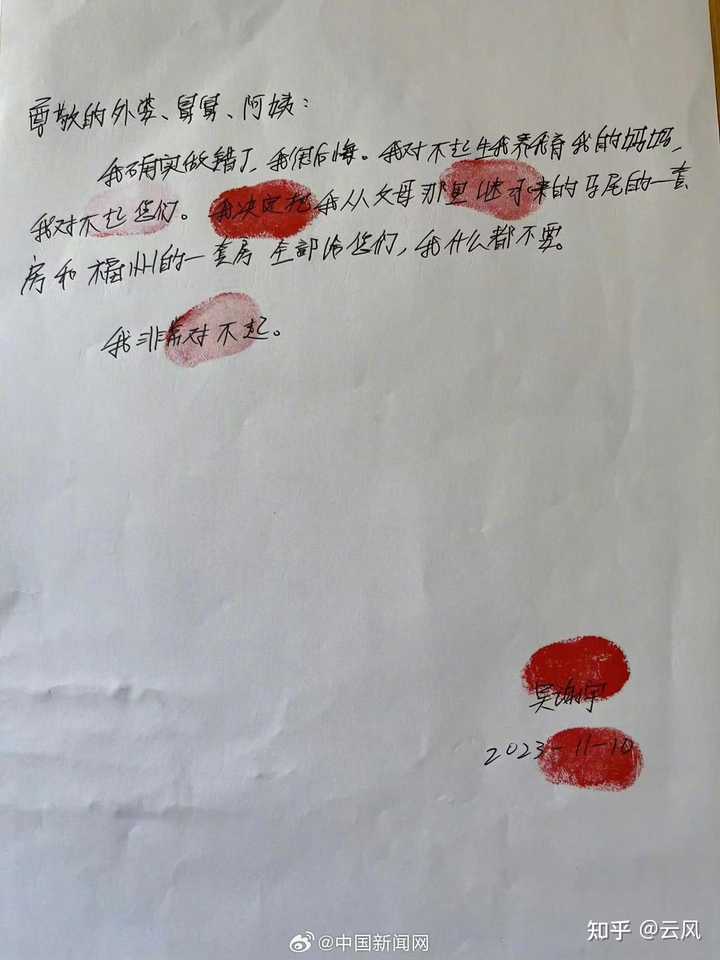 尊敬的外婆、舅舅、阿姨：
我确实做错了，我很后悔。我对不起生我养我育我的妈妈，
我对不起您们。我决定把我从父母那里继承来的马尾的一套
房和福州的一套房全部给您们，我什么都不要。
我非常对不起。
吴谢宇
2023-11-10
@中国新闻网
知乎 @云风